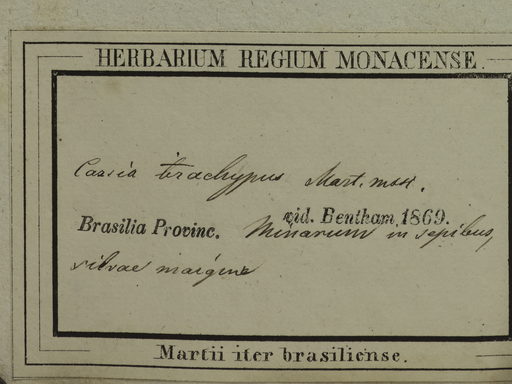 HERBARIUM REGIUM MONACENSE.
Cassia trachypus Mart. mss.
vid. Bentham 1869.
Brasilia Provinc. Minarum in sepibus,
silvae margine
Martii iter brasiliense.